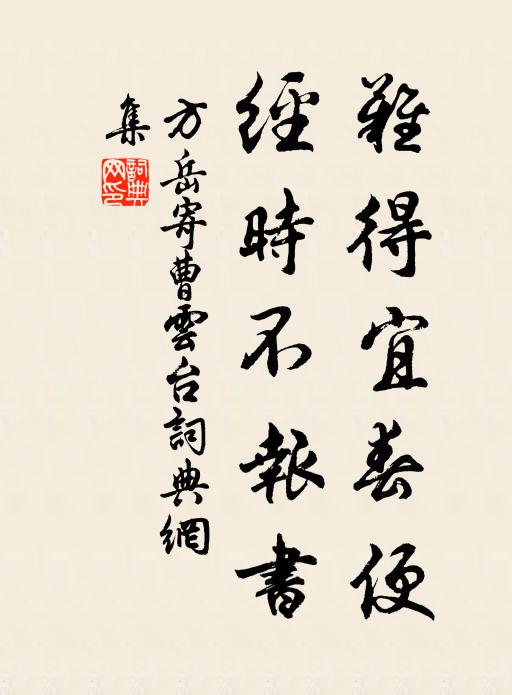 難得宜春便
經時不報書
方岳寄曹雲台詞典網
集
詞典網印